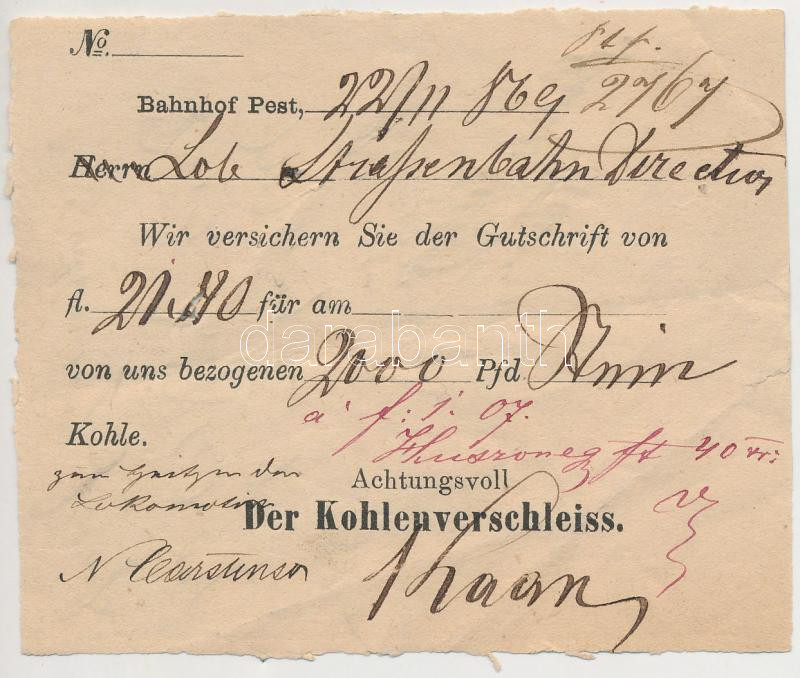 No.
Bahnhof Pest, 22/11 869 2767
Herrn Lob Strassenbahn Direction
Wir versichern Sie der Gutschrift von
fl. 21.40 für am
von uns bezogenen 2000 Pfd
à f: 1. 07.
Huszonegy ft 40 xr:
Kohle.
zum Heitzen der
Lokomotive
Achtungsvoll
Der Kohlenverschleiss.
N Carstensen
darabanth